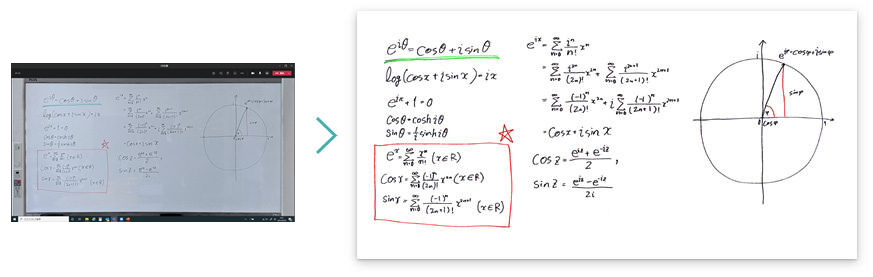 e^{iθ} = cosθ + i sinθ
log(cosx + i sinx) = ix
e^{iπ} + 1 = 0
cosθ = cosh iθ
sinθ = \frac{1}{i} sinh iθ
e^x = \sum_{n=0}^{∞} \frac{x^n}{n!} (x∈R)
cosx = \sum_{n=0}^{∞} \frac{(-1)^n}{(2n)!} x^{2n} (x∈R)
sinx = \sum_{n=0}^{∞} \frac{(-1)^n}{(2n+1)!} x^{2n+1} (x∈R)
e^{ix} = \sum_{n=0}^{∞} \frac{i^n}{n!} x^n
= \sum_{n=0}^{∞} \frac{i^{2n}}{(2n)!} x^{2n} + \sum_{n=0}^{∞} \frac{i^{2n+1}}{(2n+1)!} x^{2n+1}
= \sum_{n=0}^{∞} \frac{(-1)^n}{(2n)!} x^{2n} + i \sum_{n=0}^{∞} \frac{(-1)^n}{(2n+1)!} x^{2n+1}
= cosx + i sinx
cosz = \frac{e^{iz} + e^{-iz}}{2},
sinz = \frac{e^{iz} - e^{-iz}}{2i}
i
e^{iφ} = cosφ + i sinφ
sinφ
φ
0 cosφ 1